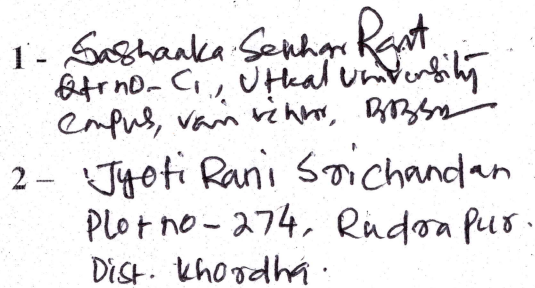 1 - Sashaaka Sekhar Rout
Qtr no - C1, Utkal University
Cmpus, vani vihar, BBSR
2 - Jyoti Rani Srichandan
Plot no - 274, Rudra pur.
Dist. Khordha.